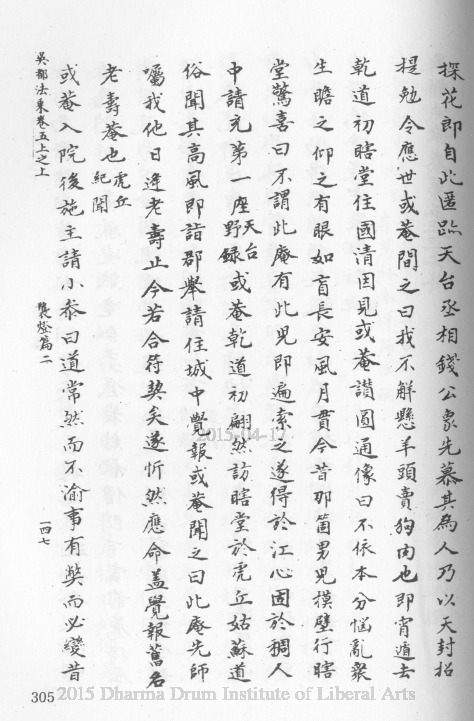 探花郎自此匿跡天台丞相錢公象先慕其為人乃以天封招
提勉令應世或菴聞之曰我不解懸羊頭賣狗肉也即宵遁去
乾道初瞎堂住國清因見或菴讚圓通像曰不依本分惱亂眾
生瞻之仰之有眼如盲長安風月貫今昔那箇男兒摸壁行瞎
堂驚喜曰不謂此庵有此兒即遍索之遂得於江心固於稠人
中請充第一座天台野錄或菴乾道初翩然訪瞎堂於虎丘姑蘇道
俗聞其高風即詣郡舉請住城中覺報或菴聞之曰此庵先師
囑我他日逢老壽止今若合符契矣遂忻然應命蓋覺報舊名
老壽菴也虎丘紀聞
或菴入院後施主請小叅曰道常然而不渝事有獘而必變昔
吳都法乘卷五上之上
襲燈篇二
一四七
305
2015-04-17
2015 Dharma Drum Institute of Liberal Arts